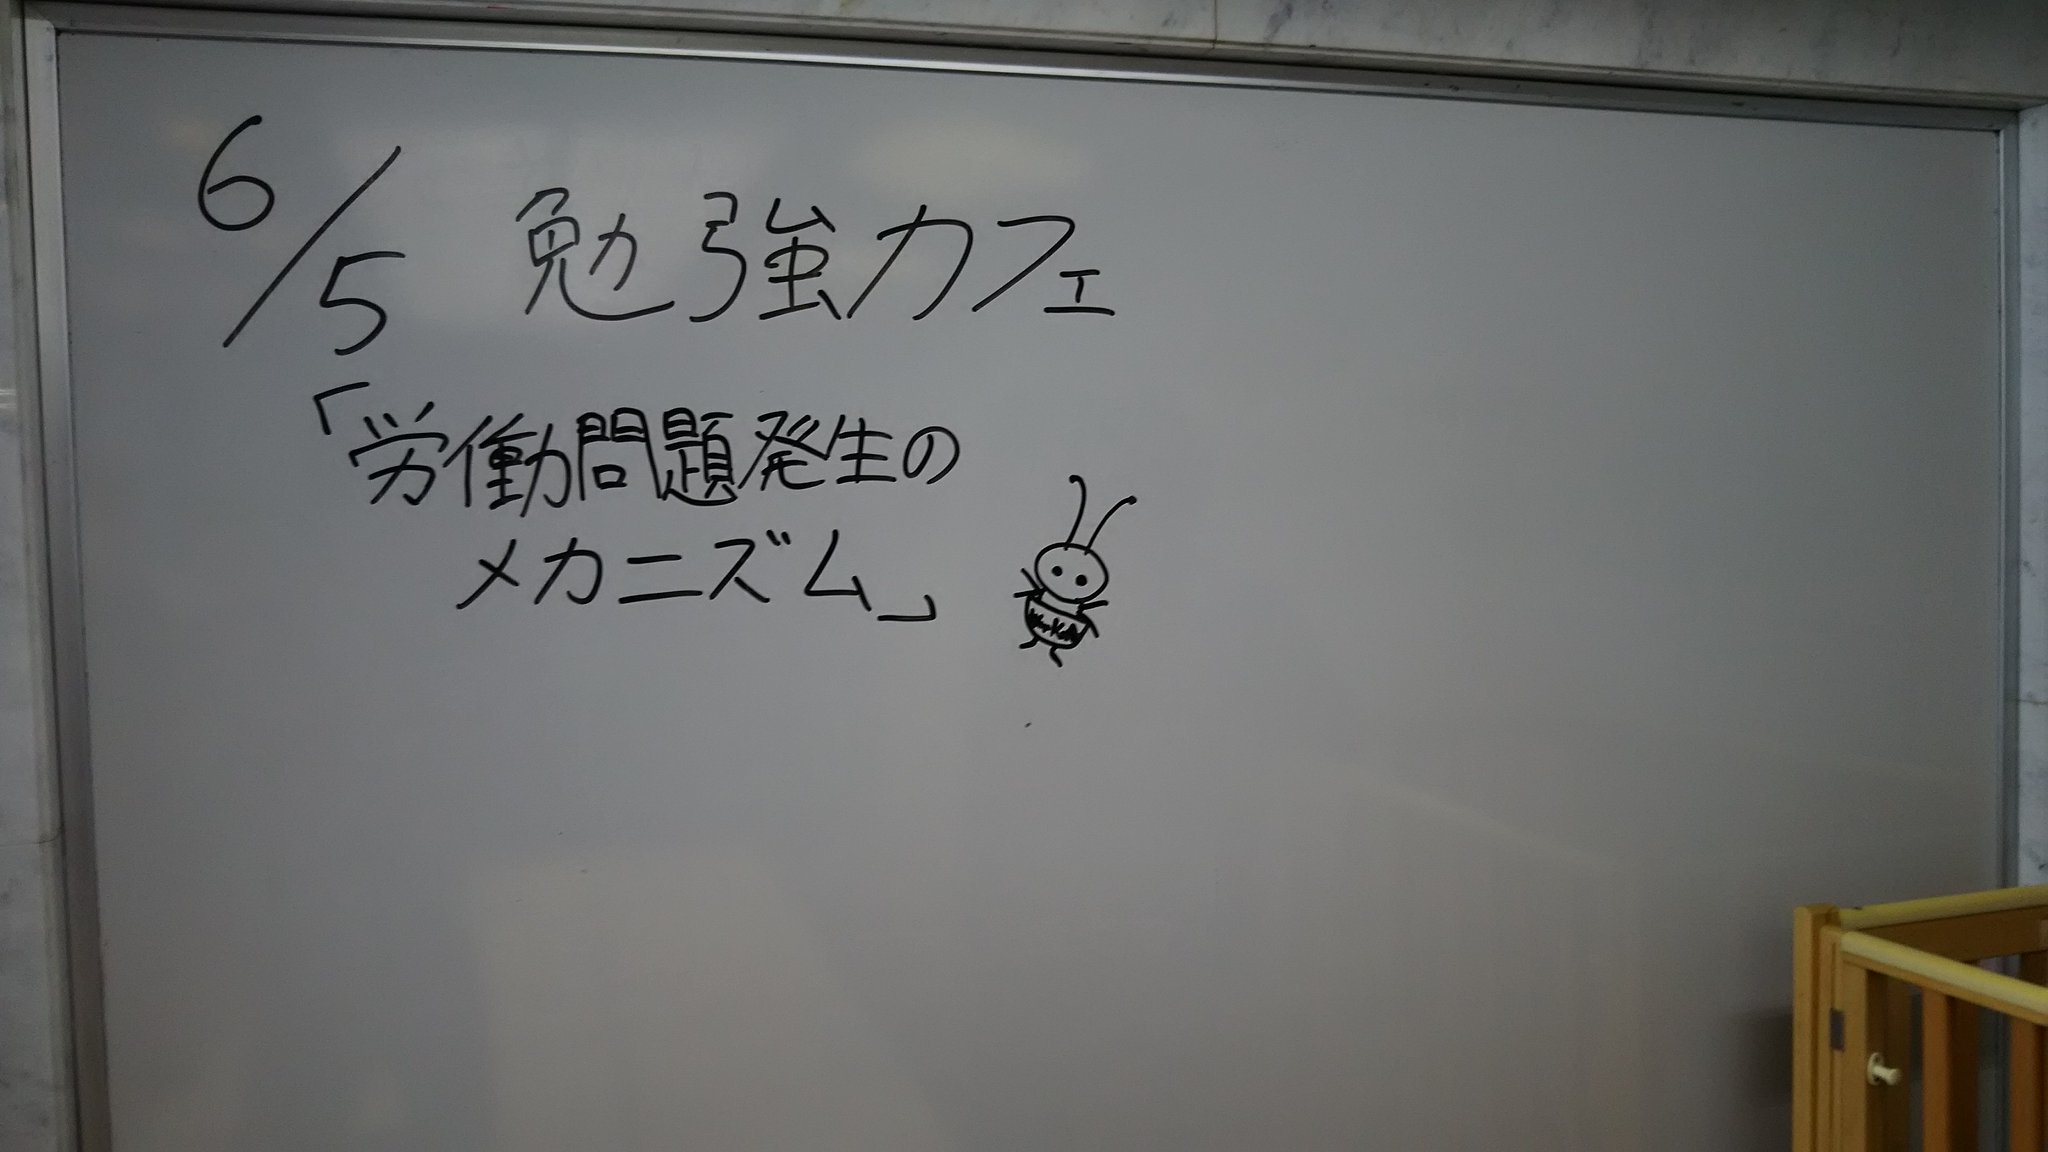 6/5 勉強カフェ
「労働問題発生の
メカニズム」